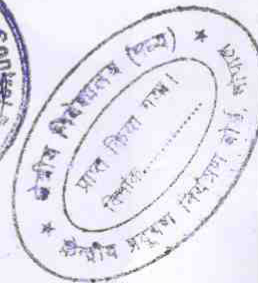 क्षेत्रीय निदेशालय (मध्य)
प्राप्त किया गया।
दिनांक..............
केन्द्रीय प्रदूषण नियंत्रण बोर्ड,